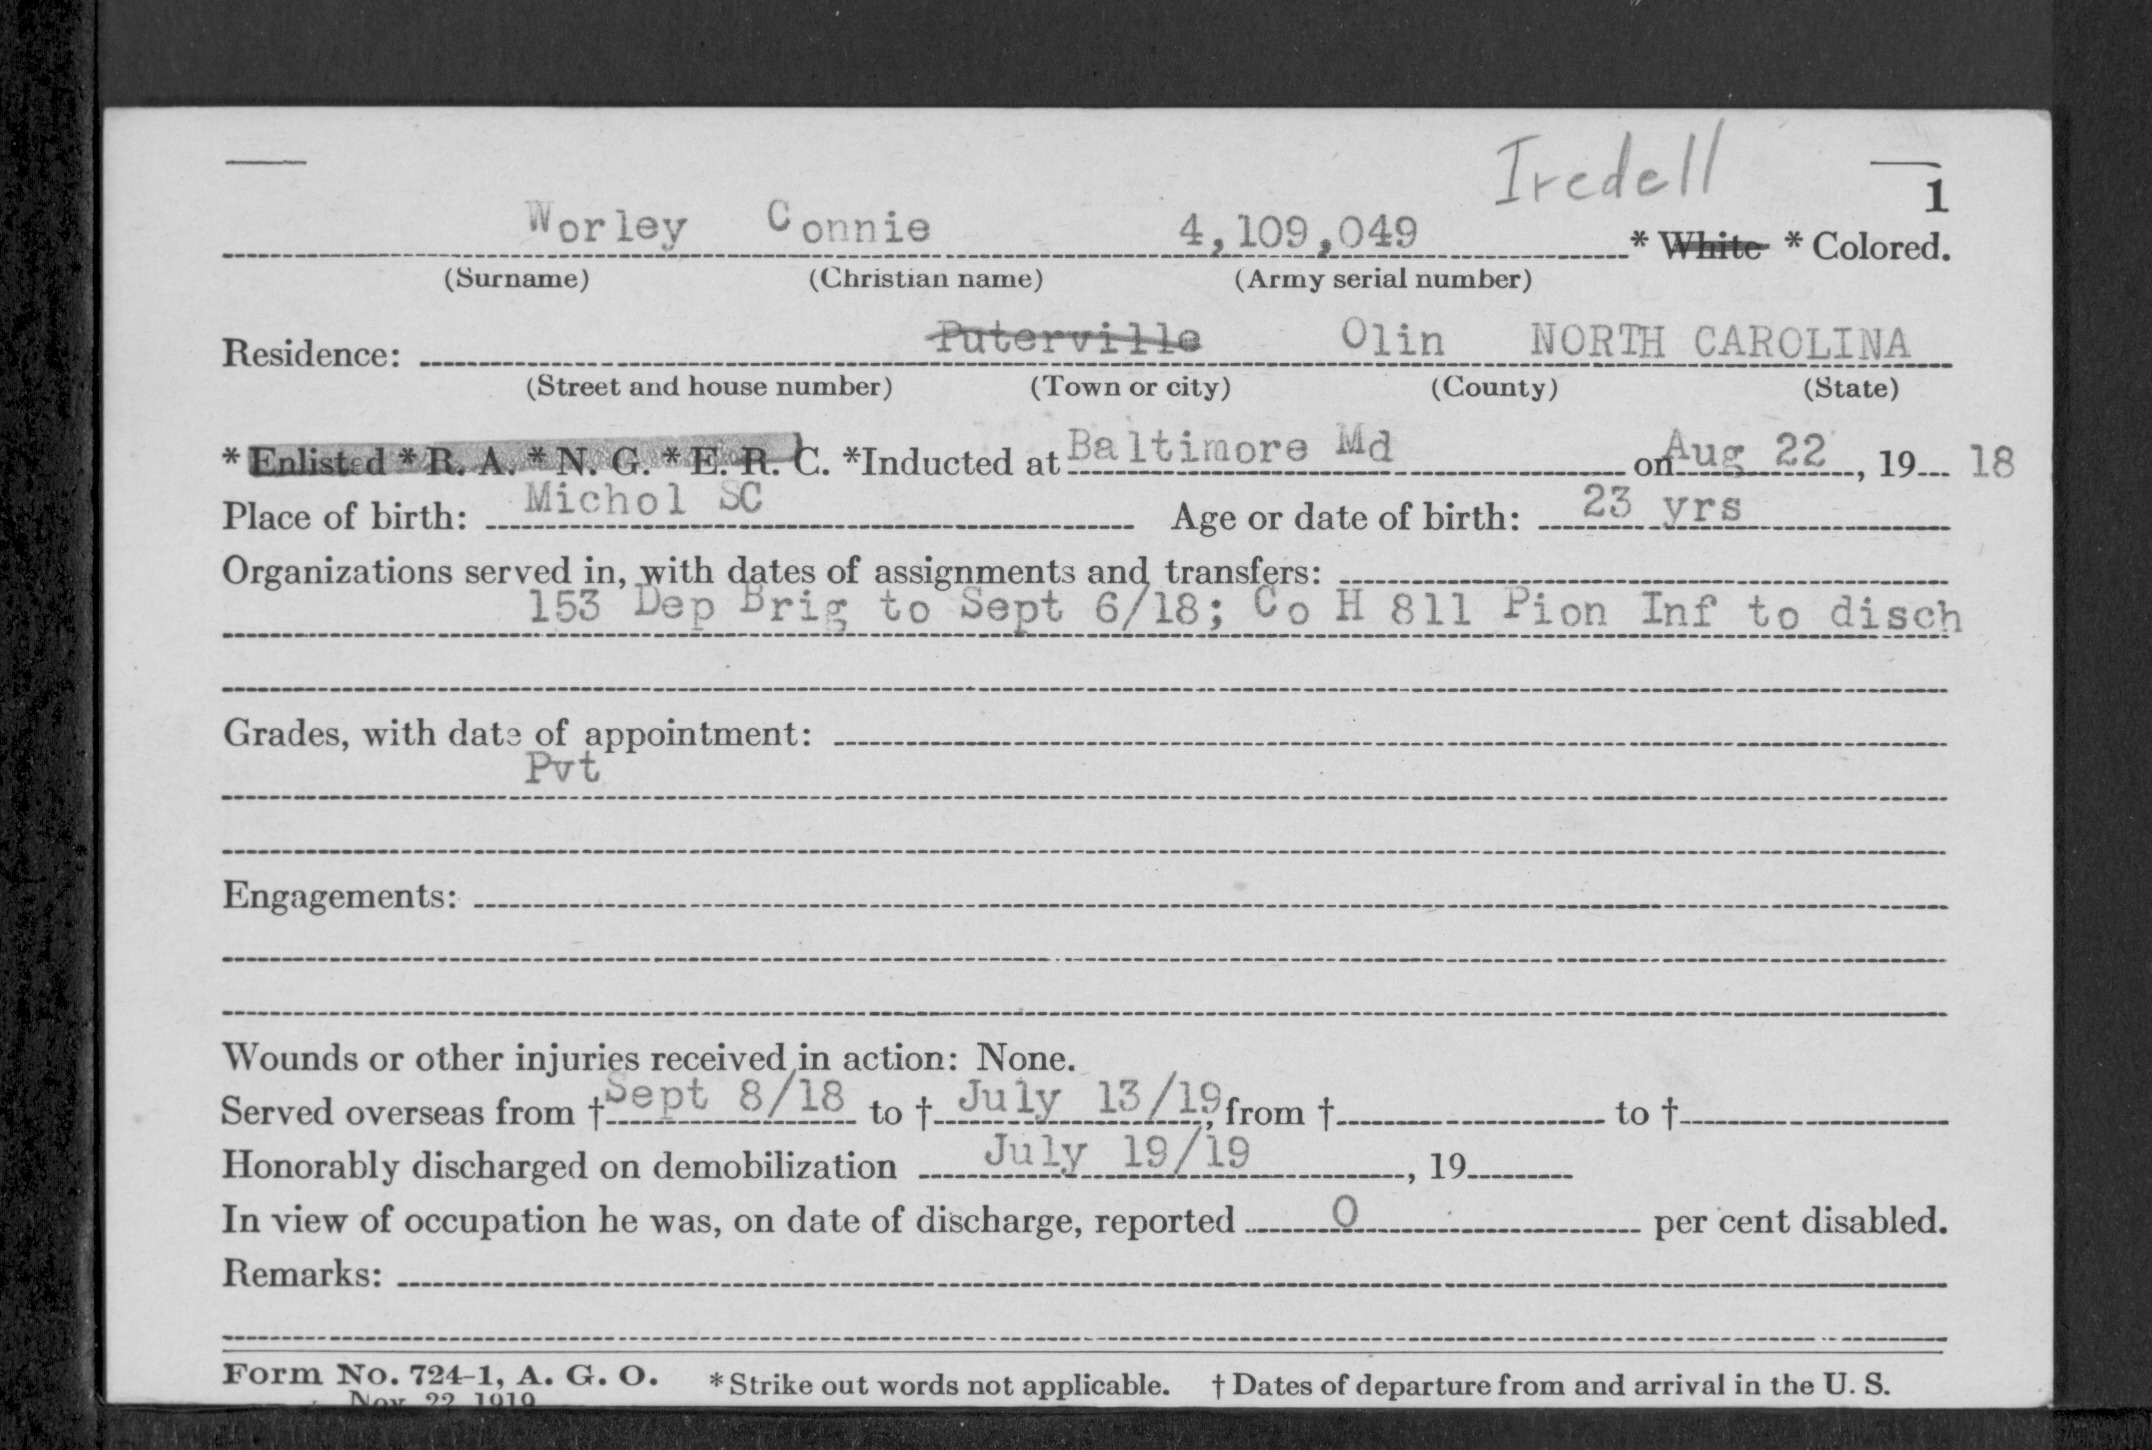 Iredell
1
Worley Connie 4,109,049 * White * Colored.
(Surname) (Christian name) (Army serial number)
Residence: Puterville Olin NORTH CAROLINA
(Street and house number) (Town or city) (County) (State)
* Enlisted * R. A. * N. G. * E. R. C. *Inducted at Baltimore Md on Aug 22, 19 18
Place of birth: Michol SC Age or date of birth: 23 yrs
Organizations served in, with dates of assignments and transfers:
153 Dep Brig to Sept 6/18; Co H 811 Pion Inf to disch
Grades, with date of appointment:
Pvt
Engagements:
Wounds or other injuries received in action: None.
Served overseas from † Sept 8/18 to † July 13/19, from † to †
Honorably discharged on demobilization July 19/19, 19
In view of occupation he was, on date of discharge, reported 0 per cent disabled.
Remarks:
Form No. 724-1, A. G. O. * Strike out words not applicable. † Dates of departure from and arrival in the U. S.
Nov. 22 1919